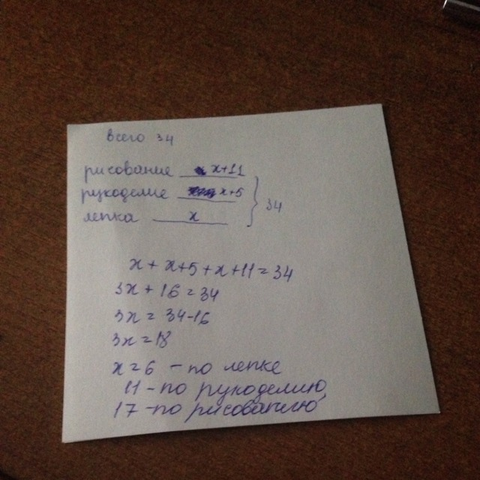 всего 34
рисование x+11
рукоделие x+5
лепка x
34
x + x+5 + x+11 = 34
3x + 16 = 34
3x = 34-16
3x = 18
x = 6 - по лепке
11 - по рукоделию,
17 - по рисованию